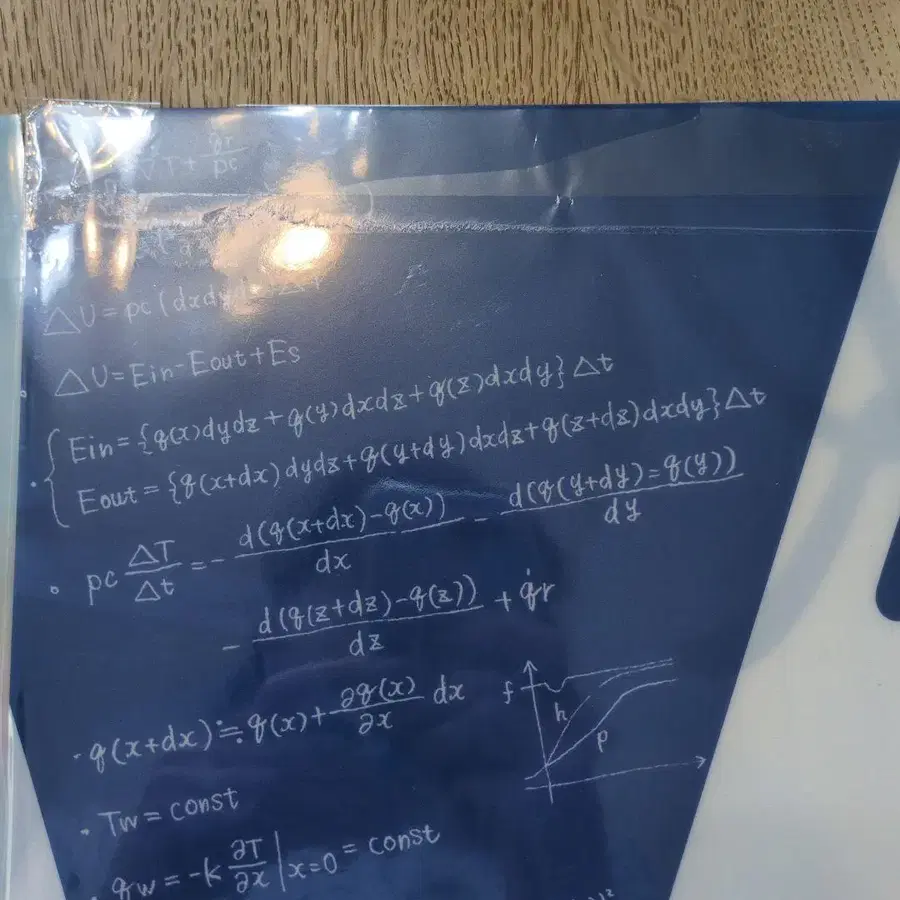 ∇T + q̇r/ρc
△U = ρc(dxdy
△U = Ein - Eout + Es
Ein = {q(x)dydz + q(y)dxdz + q(z)dxdy}△t
Eout = {q(x+dx)dydz + q(y+dy)dxdz + q(z+dz)dxdy}△t
ρc △T/△t = - d(q(x+dx)-q(x))/dx - d(q(y+dy)=q(y))/dy
- d(q(z+dz)-q(z))/dz + q̇r
f
h
p
・q(x+dx) ≒ q(x) + ∂q(x)/∂x dx
・Tw = const
・qw = -k ∂T/∂x |x=0 = const